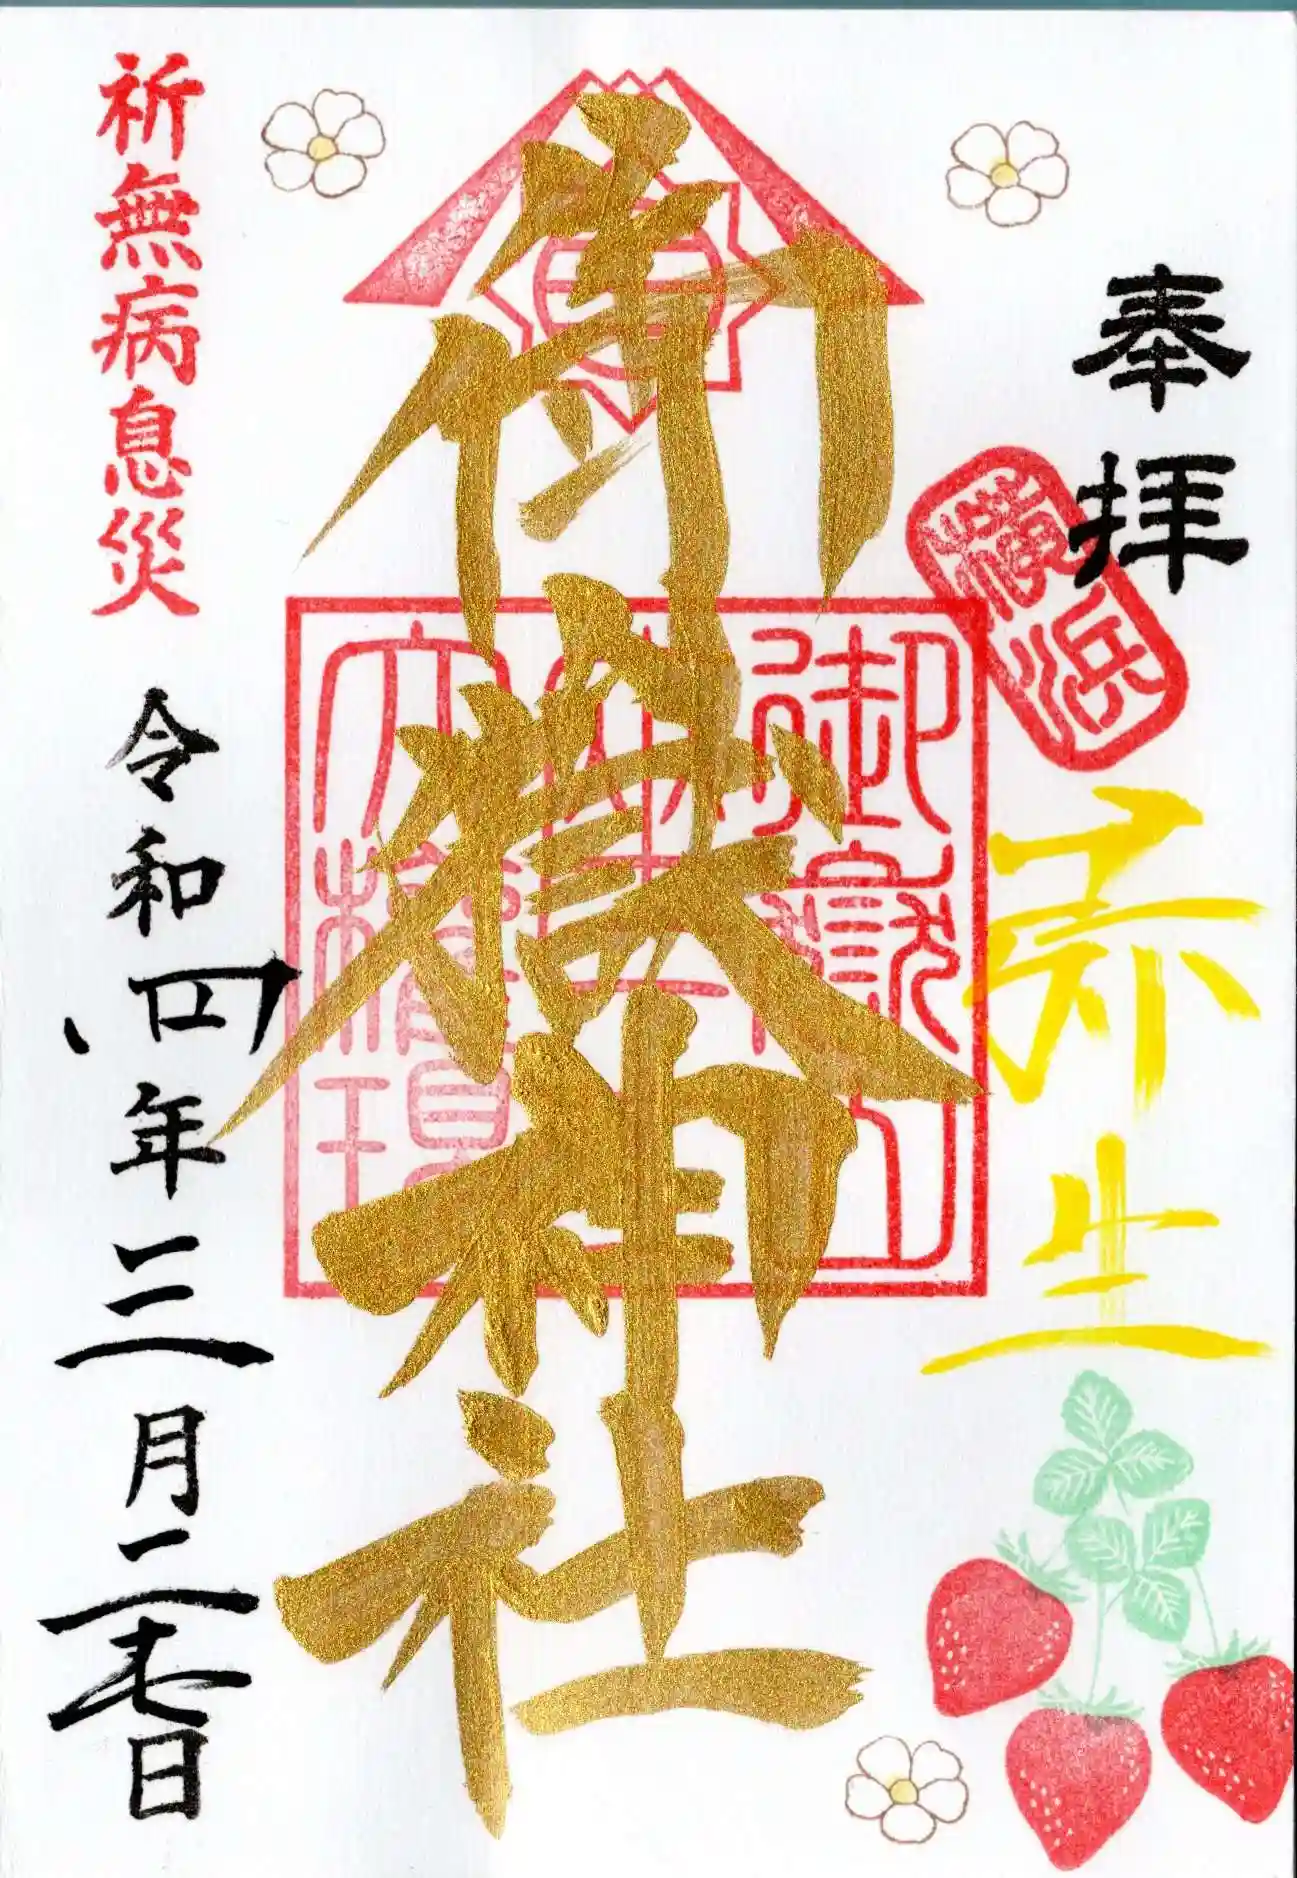 奉拝
横浜
弥生
御嶽神社
御嶽山
大権現
祈無病息災
令和四年三月二十七日